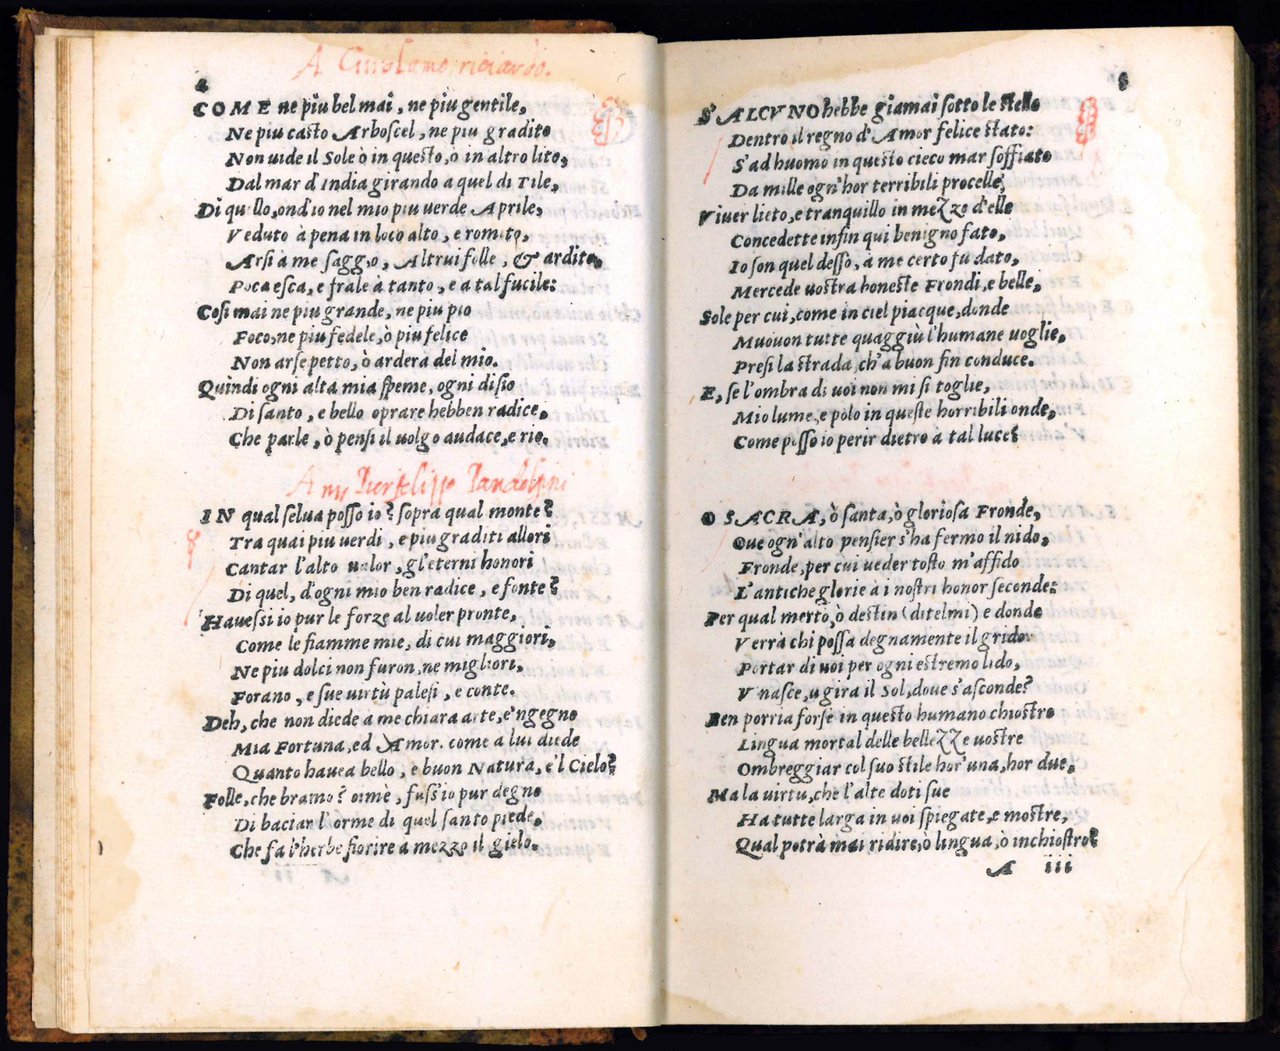 A Girolamo ricciardo.
4
COME ne piu bel mai, ne piu gentile,
Ne piu casto Arboscel, ne piu gradito
Non uide il Sole ò in questo, ò in altro lito,
Dal mar d'India girando a quel di Tile,
Di quello, ond'io nel mio piu uerde Aprile,
Veduto à pena in loco alto, e romito,
Arsi à me saggio, Altrui folle, & ardito,
Poca esca, e frale à tanto, e a tal fucile:
Cosi mai ne piu grande, ne piu pio
Foco, ne piu fedele, ò piu felice
Non arse petto, ò arderà del mio.
Quindi ogni alta mia speme, ogni disio
Di santo, e bello oprare hebben radice,
Che parle, ò pensi il uolgo audace, e rio.
A mr Pierfilippo Pandolfini
IN qual selua posso io? sopra qual monte?
Tra quai piu uerdi, e piu graditi allori
Cantar l'alto ualor, gl'eterni honori
Di quel, d'ogni mio ben radice, e fonte?
Hauessi io pur le forze al uoler pronte,
Come le fiamme mie, di cui maggiori,
Ne piu dolci non furon, ne migliori,
Forano, e sue uirtù palesi, e conte.
Deh, che non diede à me chiara arte, e'ngegno
Mia Fortuna, ed Amor, come a lui diede
Quanto hauea bello, e buon Natura, e'l Cielo?
Folle, che bramo? oimè, fuss'io pur degno
Di baciar l'orme di quel santo piede,
Che fa l'herbe fiorire a mezzo il gielo.
5
S'ALCVNO hebbe giamai sotto le stelle
Dentro il regno d'Amor felice stato:
S'ad huomo in questo cieco mar soffiato
Da mille ogn'hor terribili procelle,
Viuer lieto, e tranquillo in mezzo d'elle
Concedette infin qui benigno fato,
Io son quel desso, à me certo fu dato,
Mercede uostra honeste Frondi, e belle,
Sole per cui, come in ciel piacque, donde
Muouon tutte quaggiù l'humane uoglie,
Presi la strada, ch'a buon fin conduce.
E, se l'ombra di uoi non mi si toglie,
Mio lume, e polo in queste horribili onde,
Come posso io perir dietro à tal luce?
O SACRA, ò santa, ò gloriosa Fronde,
Oue ogn'alto pensier s'ha fermo il nido,
Fronde, per cui ueder tosto m'affido
L'antiche glorie à i nostri honor seconde:
Per qual merto, ò destin (ditelmi) e donde
Verrà chi possa degnamente il grido
Portar di uoi per ogni estremo lido,
V nasce, u gira il Sol, doue s'asconde?
Ben porria forse in questo humano chiostro
Lingua mortal delle bellezze uostre
Ombreggiar col suo stile hor'una, hor due,
Ma la uirtu, che l'alte doti sue
Ha tutte larga in uoi spiegate, e mostre,
Qual potrà mai ridire, ò lingua, ò inchiostro?
A iii